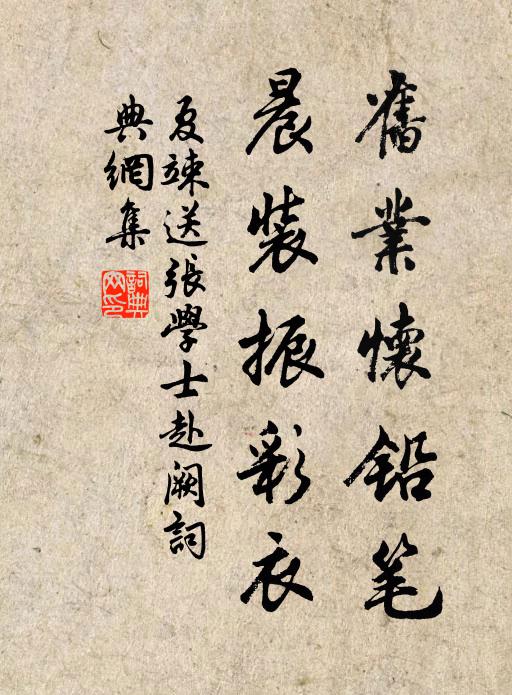 舊業懷鉛笔
晨裝振彩衣
夏竦送張學士赴阙詞
典網集
詞典网印